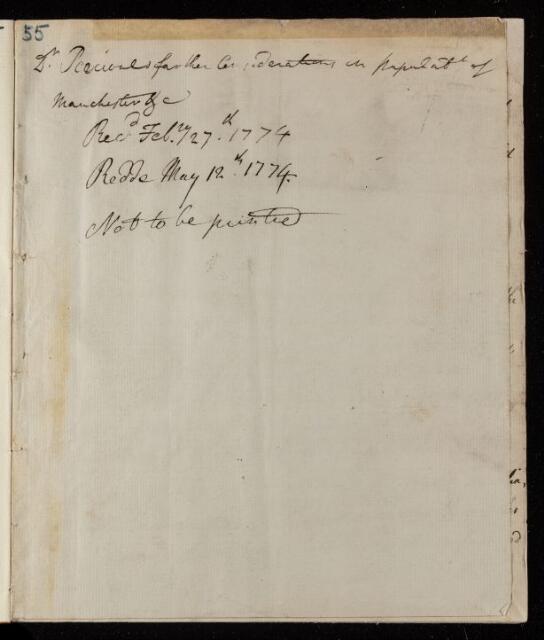 55
Dr. Percivals farther Considerations on populatn. of
Manchester &c
Recd. Febry. 27th. 1774
Redde May 12th. 1774.
Not to be printed